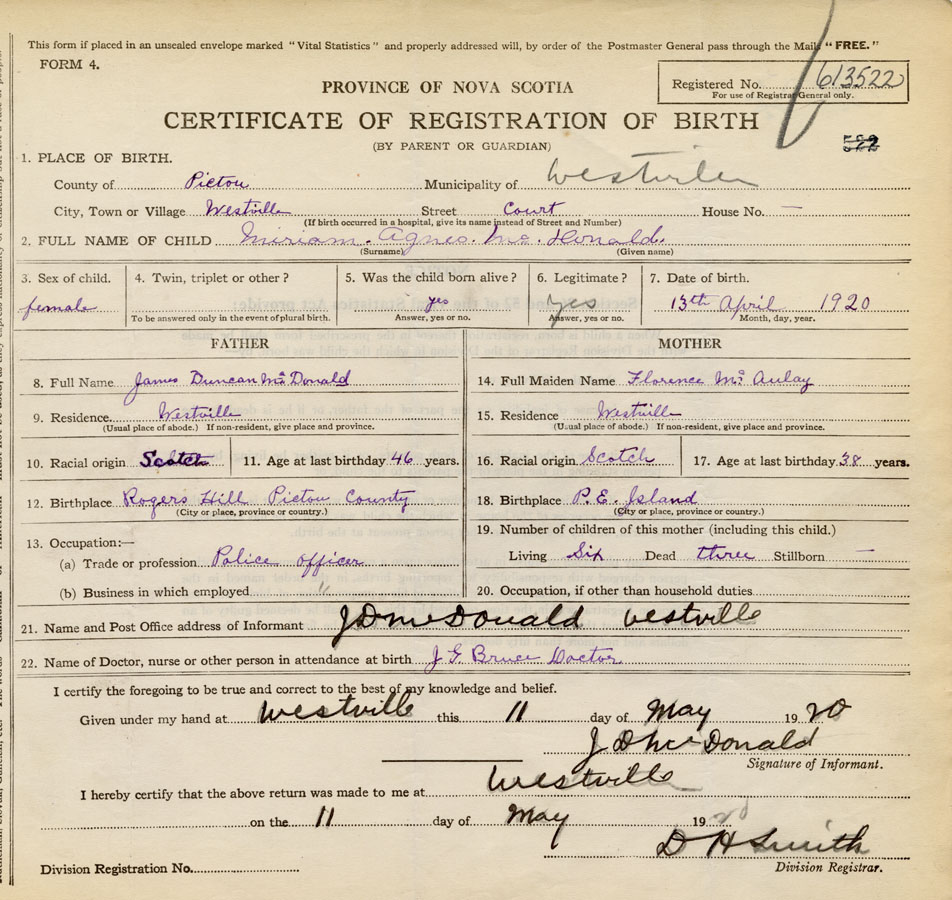 This form if placed in an unsealed envelope marked "Vital Statistics" and properly addressed will, by order of the Postmaster General pass through the Mails "FREE."
FORM 4.
Registered No. 613522
For use of Registrar General only.
PROVINCE OF NOVA SCOTIA
CERTIFICATE OF REGISTRATION OF BIRTH
(BY PARENT OR GUARDIAN)
522
1. PLACE OF BIRTH.
County of Pictou Municipality of Westville
City, Town or Village Westville Street Court House No. —
(If birth occurred in a hospital, give its name instead of Street and Number)
2. FULL NAME OF CHILD Miriam. Agnes. Mc. Donald.
(Surname) (Given name)
3. Sex of child. 4. Twin, triplet or other? 5. Was the child born alive? 6. Legitimate? 7. Date of birth.
female yes yes 13th April 1920
To be answered only in the event of plural birth. Answer, yes or no. Answer, yes or no. Month, day, year.
FATHER MOTHER
8. Full Name James Duncan McDonald 14. Full Maiden Name Florence Mc Aulay
9. Residence. Westville 15. Residence Westville
(Usual place of abode.) If non-resident, give place and province. (Usual place of abode.) If non-resident, give place and province.
10. Racial origin Scotch 11. Age at last birthday 46 years. 16. Racial origin Scotch 17. Age at last birthday 38 years.
12. Birthplace Rogers Hill Pictou County 18. Birthplace P.E. Island
(City or place, province or country.) (City or place, province or country.)
13. Occupation:— 19. Number of children of this mother (including this child.)
(a) Trade or profession Police officer Living Six Dead three Stillborn —
(b) Business in which employed " 20. Occupation, if other than household duties
21. Name and Post Office address of Informant J D McDonald Westville
22. Name of Doctor, nurse or other person in attendance at birth J G Bruce Doctor
I certify the foregoing to be true and correct to the best of my knowledge and belief.
Given under my hand at Westville this 11 day of May 1920
J D McDonald
Signature of Informant.
I hereby certify that the above return was made to me at Westville
on the 11 day of May 1920
D H Smith
Division Registration No. Division Registrar.